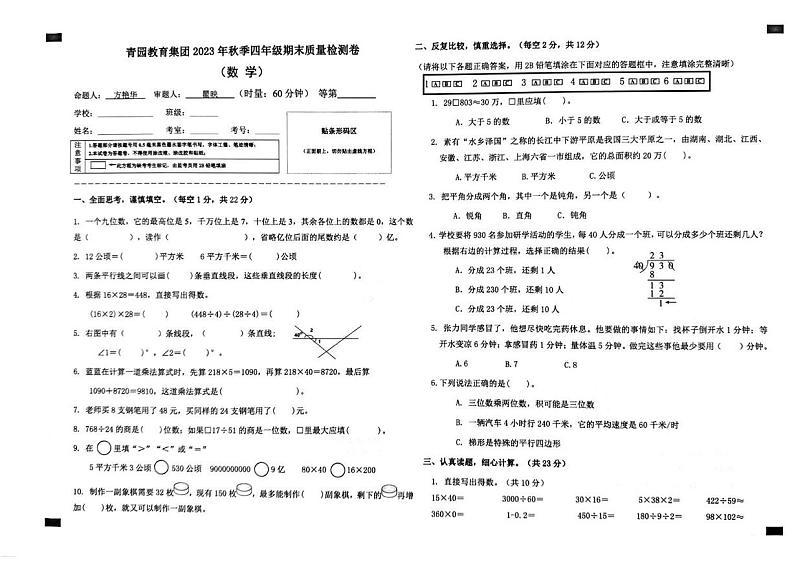 青园教育集团 2023 年秋季四年级期末质量检测卷
（数 学）
命题人： 方艳华 审题人： 瞿映 （时量：60 分钟） 等第
学校： 班级：
姓名： 考室： 考号：
贴条形码区
（正面朝上，切勿贴出虚线方框）
注意事项
1.答题部分请按题号用0.5毫米黑色墨水签字笔书写，字体工整、笔迹清晰；
一、全面思考，谨慎填空。（每空 1 分，共 22 分）
1. 一个九位数，它的最高位是 5，千万位上是 7，十位上是 3，其余各位上的数都是 0，这个数
是（ ），读作（ ），省略亿位后面的尾数约是（ ）亿。
2. 12 公顷=（ ）平方米 6 平方千米=（ ）公顷
3. 两条平行线之间可以画（ ）条垂直线段，这些垂直线段的长度（ ）。
4. 根据 16×28=448，直接写出得数。
(16×2)×28=（ ） (448÷4)÷(28÷4)=（ ）
5. 右图中有（ ）条线段，（ ）条直线；
∠1=（ ）°，∠2=（ ）°。
40° 2 1
6. 蓝蓝在计算一道乘法算式时，先算 218×5=1090，再算 218×40=8720，最后算
1090+8720=9810，这道乘法算式是（ ）。
7. 老师买 8 支钢笔用了 48 元，买同样的 24 支钢笔用了（ ）元。
8. 768÷24 的商是（ ）位数；如果□17÷51 的商是一位数，□里最大应填（ ）。
9. 在 ○ 里填“>”“<”或“=”
5 平方千米 3 公顷 ○ 530 公顷 9000000000 ○ 9 亿 80×40 ○ 16×200
10. 制作一副象棋需要 32 枚 ，现有 150 枚 ，最多能制作（ ）副象棋，剩下的 再增
加（ ）枚，就又可以制作一副象棋。
二、反复比较，慎重选择。（每空 2 分，共 12 分）
（请将以下各题正确答案，用 2B 铅笔填涂在下面对应的答题框中，注意填涂完整清晰）
1 A B C 2 A B C 3 A B C 4 A B C 5 A B C 6 A B C
1. 29□803≈30 万，□里应填（ ）。
A. 大于 5 的数 B. 小于 5 的数 C. 大于或等于 5 的数
2. 素有“水乡泽国”之称的长江中下游平原是我国三大平原之一，由湖南、湖北、江西、
安徽、江苏、浙江、上海六省一市组成，它的总面积约 20 万（ ）。
A.平方千米 B.平方米 C.公顷
3. 把平角分成两个角，其中一个是钝角，另一个是（ ）。
A. 锐角 B. 直角 C. 钝角
4.学校要将 930 名参加研学活动的学生，每 40 人分成一个班，可以分成多少个班还剩几人？
根据右边的计算过程，选择正确的结果（ ）。
A. 分成 23 个班，还剩 1 人
B. 分成 230 个班，还剩 10 人
C. 分成 23 个班，还剩 10 人
2 3
40 9 3 0
8
1 3
1 2
1
5. 张力同学感冒了，他想尽快吃完药休息。他要做的事情如下：找杯子倒开水 1 分钟；等
开水变凉 6 分钟；拿感冒药 1 分钟；量体温 5 分钟。做完这些事他最少要用（ ）分钟。
A.6 B.7 C.8
6.下列说法正确的是（ ）。
A. 三位数乘两位数，积可能是三位数
B. 一辆汽车 4 小时行 240 千米，它的平均速度是 60 千米/时
C. 梯形是特殊的平行四边形
三、认真读题，细心计算。（共 23 分）
1. 直接写出得数。（共 10 分）
15×40= 3000÷60= 30×16= 5×38×2= 422÷59≈
360×0= 1-0.2= 450÷15= 180÷9÷2= 98×102≈